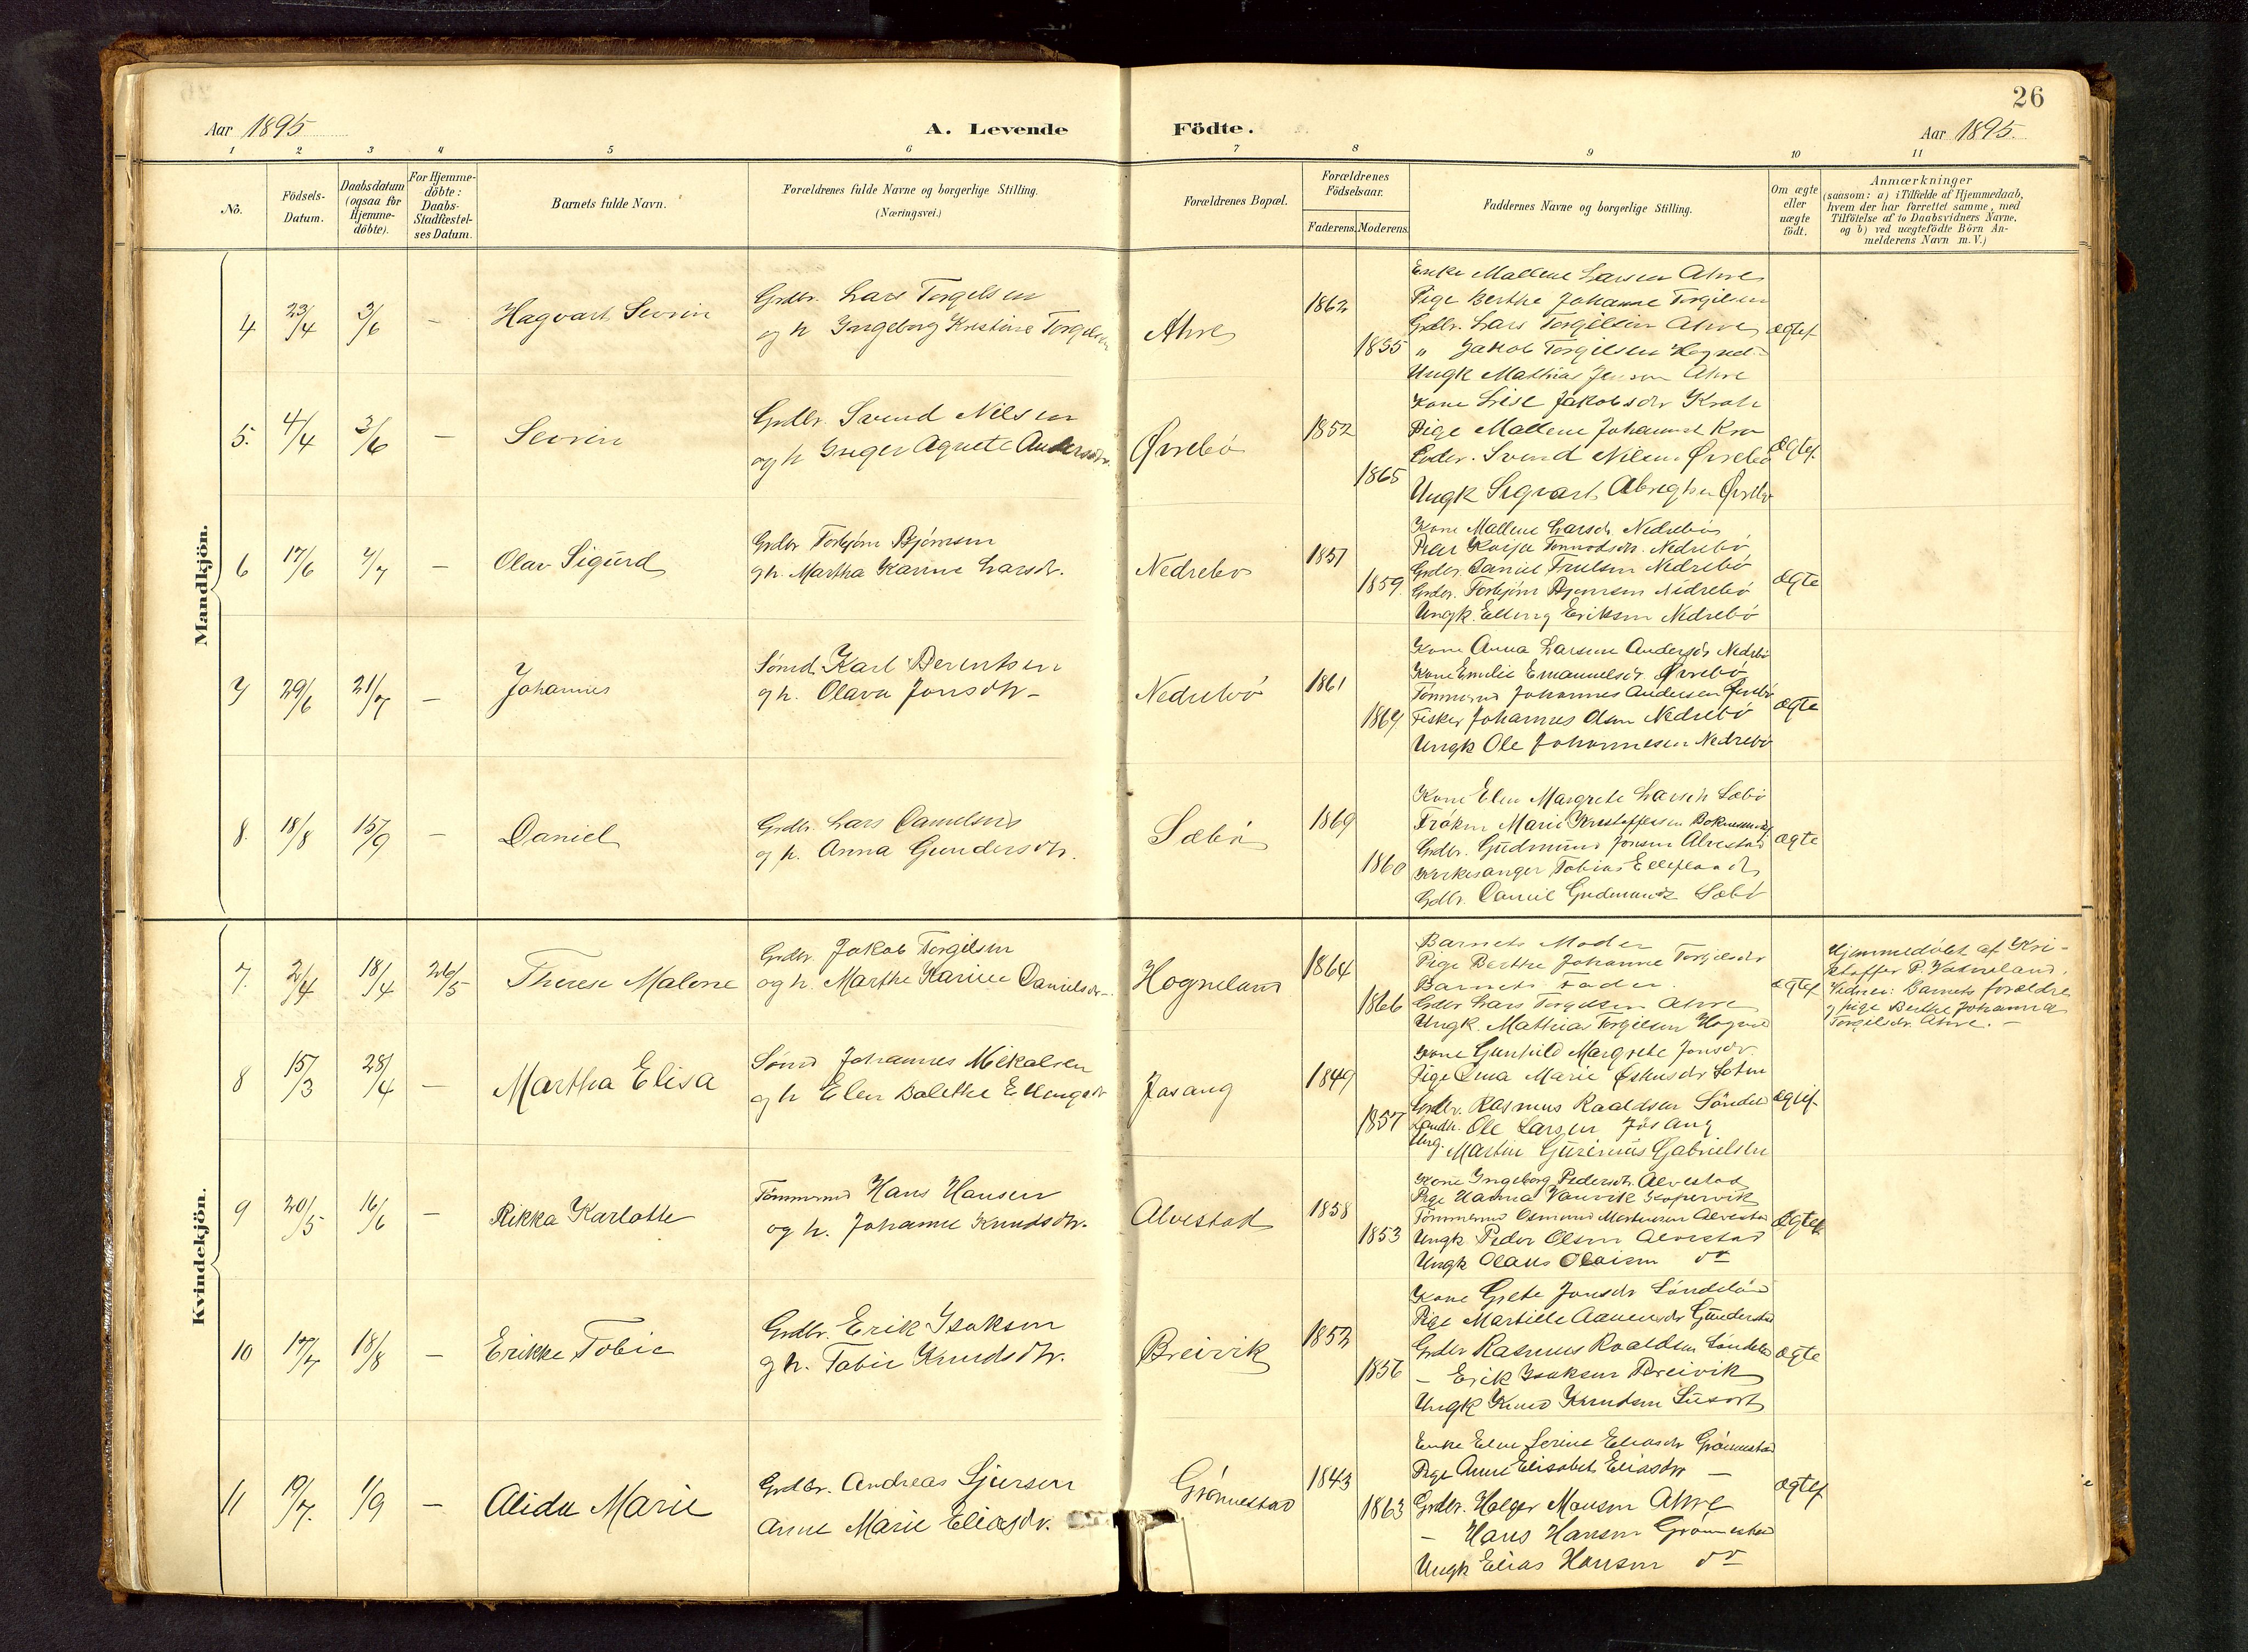 26
Aar 1895
A. Levende
Födte.
Aar 1895.
1 2 3 4 5 6 7 8 9 10 11
No.
Födsels-
Datum.
Daabsdatum
(ogsaa for
Hjemme-
döbte).
For Hjemme-
döbte:
Daabs-
Stadfæstel-
ses Datum.
Barnets fulde Navn.
Forældrenes fulde Navne og borgerlige Stilling.
(Næringsvei.)
Forældrenes Bopæl.
Forældrenes
Födselsaar.
Faderens. Moderens.
Faddernes Navne og borgerlige Stilling.
Om ægte
eller
uægte
födt.
Anmærkninger
(saasom: a) i Tilfælde af Hjemmedaab,
hvem der har forrettet samme, med
Tilföielse af to Daabsvidners Navne,
og b) ved uægtefödte Börn An-
melderens Navn m. V.)
Mandkjön.
4 23/4 3/6 – Hagvart Sevrin
Grdbr. Lars Torgilsen
og h Ingeborg Kristine Torgilsdr
Ahre
1862
1855
Enke Mallene Larsen Ahre
Pige Berthe Johanne Torgilsen
Grdbr. Lars Torgilsen Ahre
" Jakob Torgilsen Hognel.
Ungk Mathias Ahre
ægtef
5. 4/4 3/6 – Sevrin
Grdbr. Svend Nilsen
og h Inger Agnete Andersdtr.
Øvrebö
1852
1865
Kone Lise Jakobsdr
Pige Mallene
Svend Nilsen Øvrebö
Ungk Sigvart Øvrebö
ægtef.
6 17/6 7/7 – Olav Sigurd
Grdbr Torbjörn Bjørnsen
gh. Martha Karine Larsdr.
Nedrebo
1857
1859.
Kone Mallene Larsdr. Nedrebö
Nedrebö
Grdbr. Daniel Nedrebö
Grdbr. Torbjörn Bjørnsen Nedrebö
Ungk. Elling Eriksen Nedrebö
ægte
7 29/6 21/7 – Johannes
Karl Berentsen
gh. Olava Jonsdtr –
Nedrebö
1861
1869
Kone Anna Larsine Andersdr Nedrebö
Kone Emilie Emanuelsdr. Øvrebö
Tömmermd Johannes Andersen Øvrebö
Fisker Johannes Olsen Nedrebö
Ungk Ole Johannesen Nedrebö
ægte
8. 18/8 15/9 – Daniel
Grdbr. Lars Danielsen
og h. Anna Gundersdtr.
Sæbö
1869
1860
Kone Elen Margrete Larsdr Sæbö
Fröken Marie Kristoffersen
Grdbr. Gudmund Jonsen Alvestad
Kirkesanger Tobias
Gdbr. Daniel Gudmunds Sæbö
ægte
Kvindekjön.
7. 2/4 18/4 26/5 Therese Malene
Grdbr. Jakob Torgilsen
og h. Marthe Karine Danielsdr.
Hogneland
1864
1866
Barnets Moder
Pige Berthe Johanne Torgilsdr
Barnets Fader.
Gdbr Lars Torgilsen Ahre
Ungk. Mathias Torgilsen Hognel
ægtef
Hjemmedöbt af Kri-
stoffer P. Vatneland.
Vidner: Barnets forældre
og pige Berthe Johanna
Torgilsdr. Ahre. –
8 15/3 28/4 – Martha Elisa
Johannes Mikalsen
og h Elen Dolethe Ellingsdr
Jøsang
1849
1857
Kone Gunhild Margrete Jonsdr.
Pige Marie
Grdbr. Rasmus Raaldsen Söndelö
Landh. Ole Larsen Jösang
Ung. Martin Gabrielsen
ægtef.
9 20/5 16/6 – Rikka Karlotte
Tömmermd Hans Hansen
og h. Johanne Knudsdtr.
Alvestad
1858
1853
Kone Ingeborg Pedersdr. Alvestad
Pige Hanna Kopervik
Tömmermd Osmund Alvestad
Ungk Peder Olsen Alvestad
Ungk Olaus Olaisen do
ægtef
10 17/7 18/8 – Erikke Tobie
Grdbr. Erik Isaksen
gh. Tobie Knudsdtr.
Breivik
1852
1856
Kone Grete Jonsdr Söndelö
Pige Gunderstad
Grdbr Rasmus Roaldsen Söndelö
– Erik Isaksen Breivik
Ungk Knud Knudsen
ægte
11 19/7. 1/9 – Alida Marie
Grdbr. Andreas Sjursen
Anne Marie Eliasdr.
Grönnestad
1843
1863
Enke Elen Serine Eliasdr Grönnestad
Pige Anne Elisabet Eliasdtr –
Grdbr. Holger Monsen Ahre
– Hans Hansen Grönnestad
Ungk Elias Hansen do
ægtef